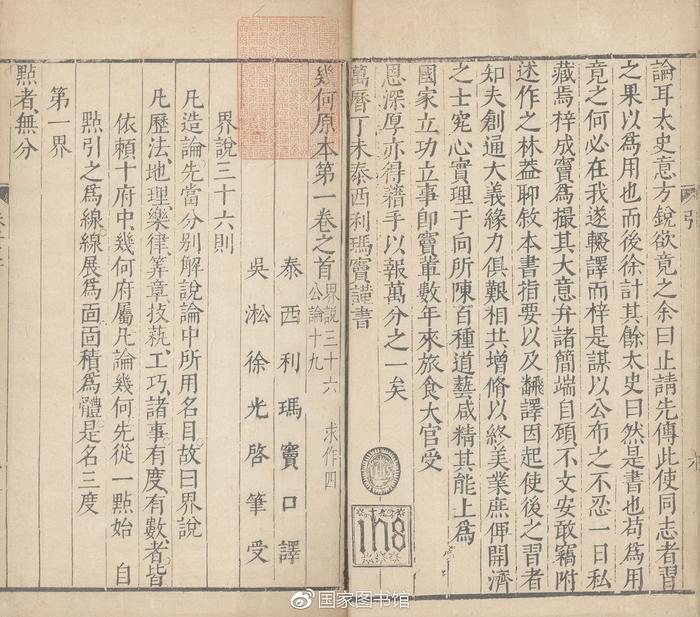 論耳太史意方銳欲竟之余曰止請先傳此使同志者習
之果以為用也而後徐計其餘太史曰然是書也苟為用
竟之何必在我遂輟譯而梓是謀以公布之不忍一日私
藏焉梓成竇為撮其大意弁諸簡端自顧不文安敢竊附
述作之林葢聊敘本書指要以及飜譯因起使後之習者
知夫創通大義緣力俱艱相共增脩以終美業庶俾開濟
之士究心實理于向所陳百種道藝咸精其能上為
國家立功立事卽竇輩數年來旅食大官受
恩深厚亦得藉手以報萬分之一矣
萬曆丁未泰西利瑪竇謹書
ihs
幾何原本第一卷之首
界說三十六
求作四
公論十九
泰西利瑪竇口譯
吳淞徐光啓筆受
界說三十六則
凡造論先當分別解說論中所用名目故曰界說
凡歷法、地理、樂律、筭章、技藝、工巧、諸事有度、有數者、皆
依頼十府中、幾何府屬凡論幾何、先從一點始 自
㸃引之為線線展為面面積為體是名三度
第一界
㸃者無分
引
国家图书馆